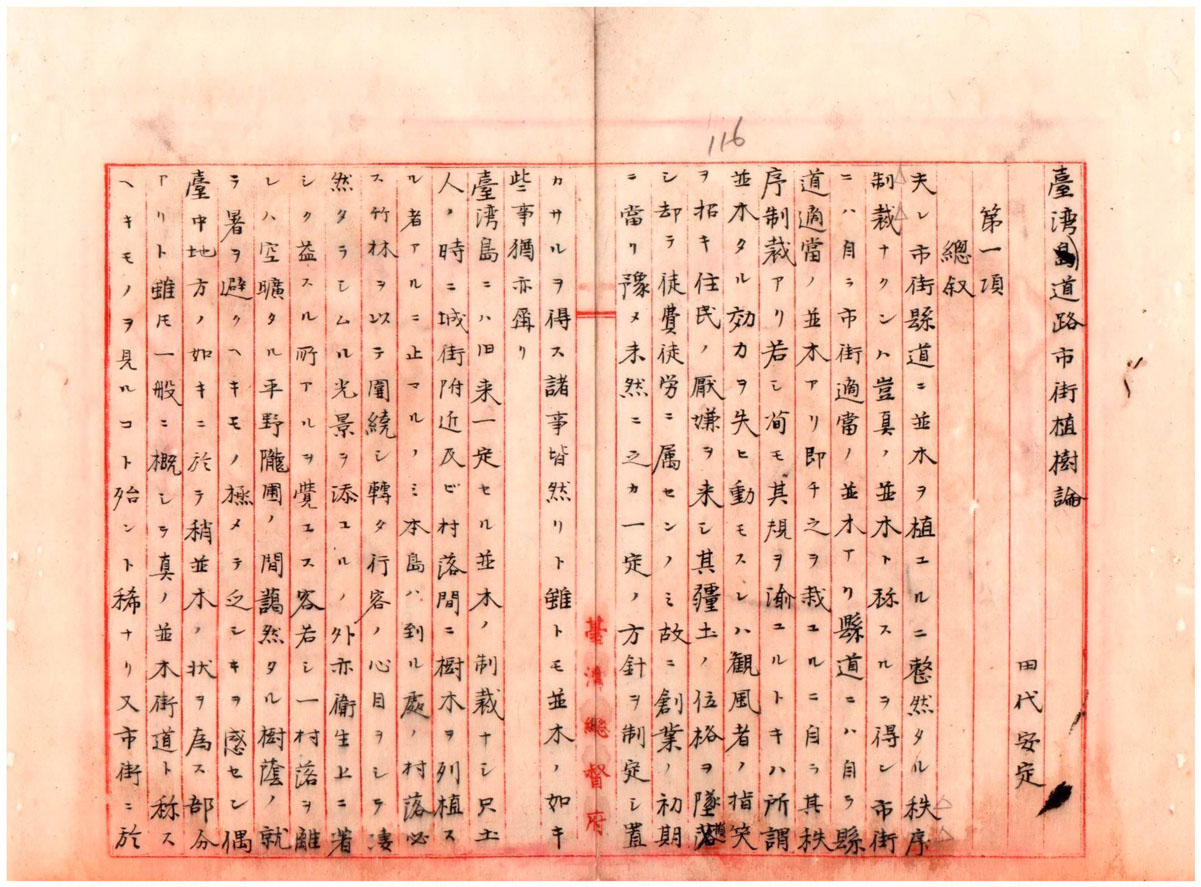 116
臺湾島道路市街植樹論
田代安定
第一項
總叙
夫レ市街縣道ニ並木ヲ植ユルニ整然タル秩序
制裁ナクンハ豈真ノ並木ト称スルヲ得ン市街
ニハ自ラ市街適當ノ並木アリ縣道ニハ自ラ縣
道適當ノ並木アリ即チ之ヲ栽ユルニ自ラ其秩
序制裁アリ若シ苟モ其規ヲ渝ユルトキハ所謂
並木タル効力ヲ失ヒ動モスレハ観風者ノ指笑
ヲ招キ住民ノ厭嫌ヲ来シ其疆土ノ位格ヲ墜落
シ却テ徒費徒労ニ属センノミ故ニ創業ノ初期
ニ當リ豫メ未然ニ之カ一定ノ方針ヲ制定シ置
カサルヲ得ス諸事皆然リト雖トモ並木ノ如キ
些事猶亦爾リ
臺湾島ニハ旧来一定セル並木ノ制裁ナシ只土
人ノ時ニ城街附近及ビ村落間ニ樹木ヲ列植ス
ル者アルニ止マルノミ本島ハ到ル處ノ村落必
ス竹林ヲ以テ圍繞シ轉タ行客ノ心目ヲシテ凄
然タラシムル光景ヲ添ユルノ外亦衛生上ニ著
シク益スル所アルヲ覚エス客若シ一村落ヲ離
レハ空曠タル平野隴圃ノ間藹然タル樹蔭ノ就
テ暑ヲ避クヘキモノ極メテ乏シキヲ感セン偶
臺中地方ノ如キニ於テ稍並木ノ状ヲ為ス部分
アリト雖トモ一般ニ概シテ真ノ並木街道ト称ス
ヘキモノヲ見ルコト殆ント稀ナリ又市街ニ於
臺灣總督府